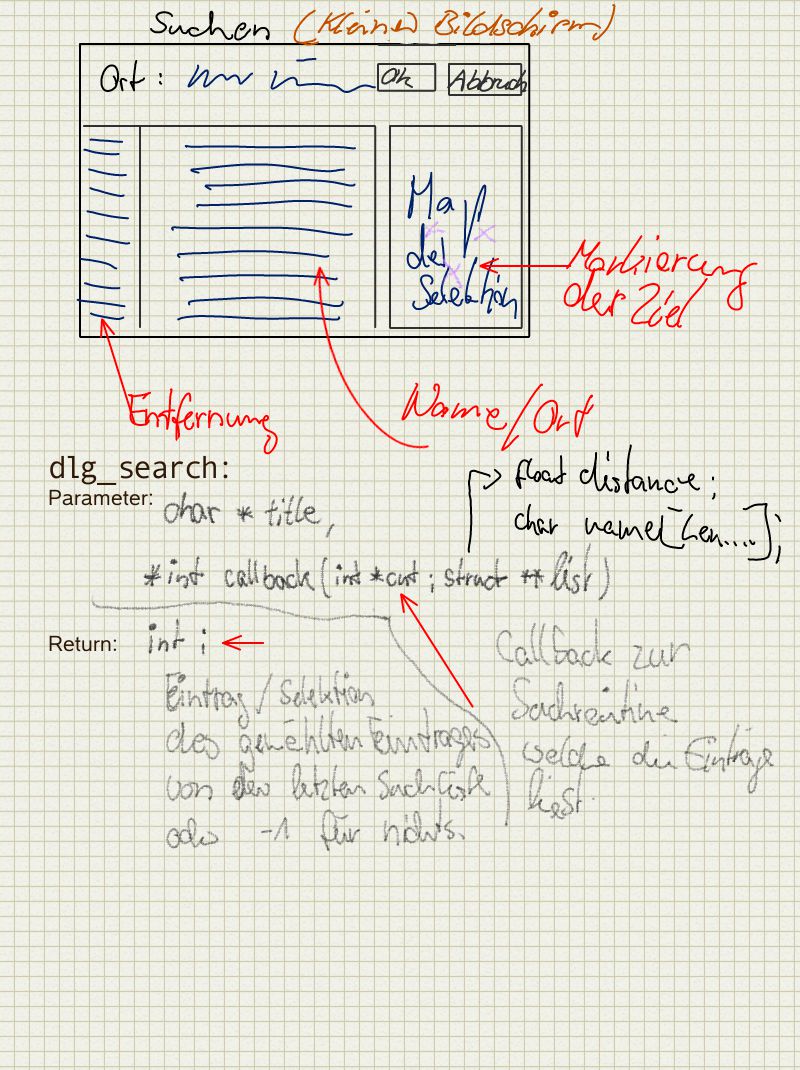 Suchen (Kleiner Bildschirm)
Ort : Ok Abbruch
Map
der
Selektion
Markierung
der Ziel
Entfernung
Name/Ort
dlg_search:
float distance;
char name[Len....];
Parameter: char * title,
*int callback(int *cnt; struct ** list)
Return: int ;
Callback zur
Suchroutine
welche die Einträge
liest.
Eintrag/Selektion
des gewählten Eintrages
von der letzten Suchliste
oder -1 für nichts.